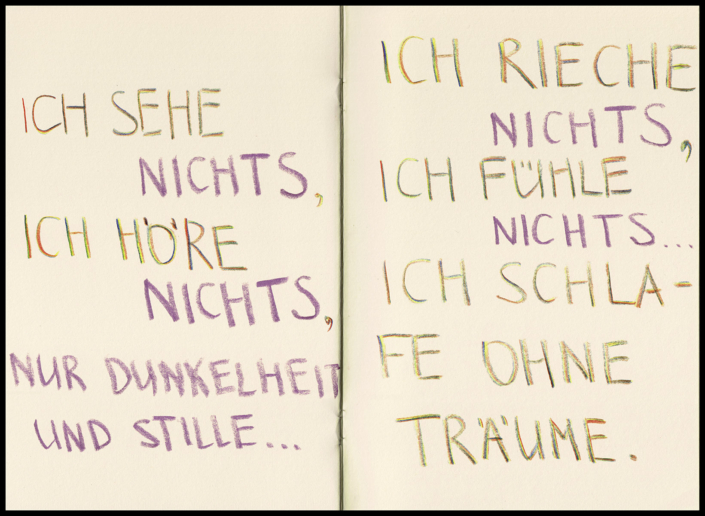 ICH SEHE
NICHTS,
ICH HÖRE
NICHTS,
NUR DUNKELHEIT
UND STILLE...
ICH RIECHE
NICHTS,
ICH FÜHLE
NICHTS...
ICH SCHLA-
FE OHNE
TRÄUME.